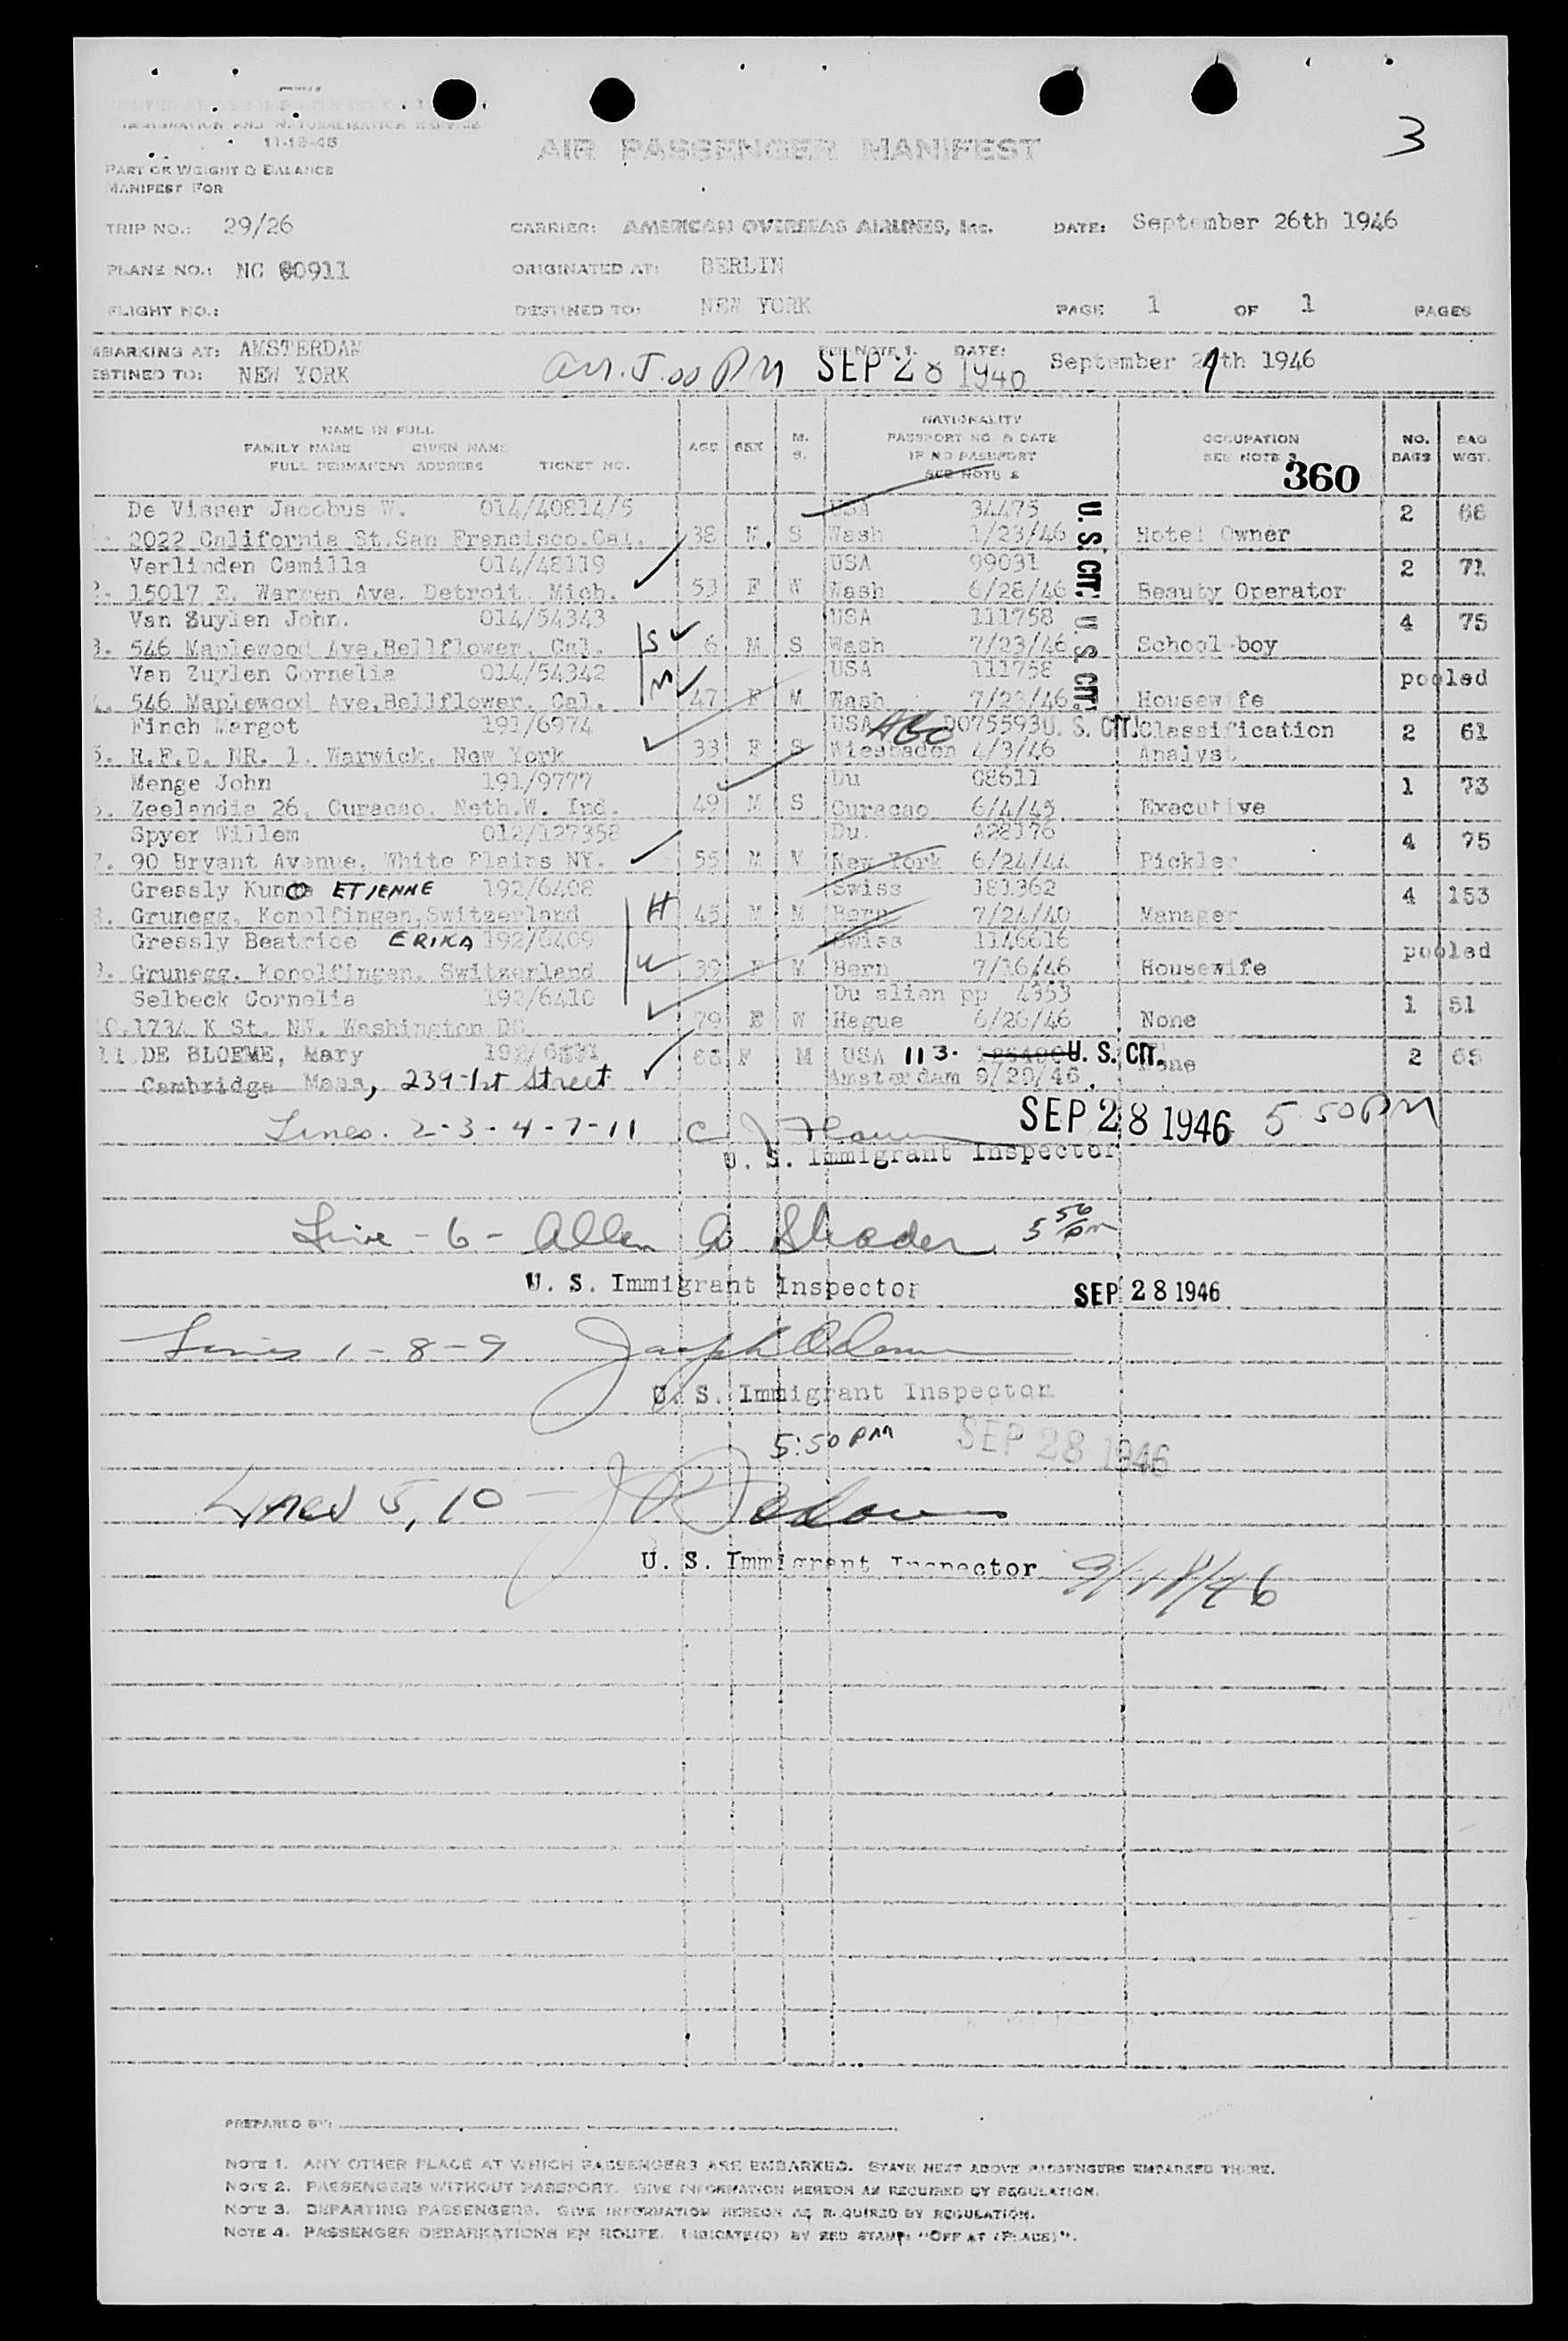 3
IMMIGRATION AND NATURALIZATION SERVICE
11-15-45
AIR PASSENGER MANIFEST
PART OR WEIGHT & BALANCE
MANIFEST FOR
TRIP NO.: 29/26 CARRIER: AMERICAN OVERSEAS AIRLINES, Inc. DATE: September 26th 1946
PLANE NO.: NC 90911 ORIGINATED AT: BERLIN
FLIGHT NO.: DESTINED TO: NEW YORK PAGE 1 OF 1 PAGES
MBARKING AT: AMSTERDAM SEE NOTE 1. DATE: September 27th 1946
ESTINED TO: NEW YORK arr. 5.00 PM SEP 28 1946
NAME IN FULL
FAMILY NAME GIVEN NAME
FULL PERMANENT ADDRESS TICKET NO.
AGE SEX M. S.
NATIONALITY
PASSPORT NO. & DATE
IF NO PASSPORT
SEE NOTE 2
OCCUPATION
SEE NOTE 3
NO. BAGS
BAG WGT.
360
De Visser Jacobus W. 014/40814/5 USA 34475 2 66
2022 California St.San Francisco.Cal. 38 M. S Wash 1/23/46 U. S. CIT. Hotel Owner
Verlinden Camilla 014/48119 USA 99031 2 71
2. 15017 E. Warren Ave. Detroit Mich. 53 F W Wash 6/28/46 Beauty Operator
Van Zuylen John. 014/54343 USA 111758 4 75
3. 546 Maplewood Ave.Bellflower. Cal. S 6 M S Wash 7/23/46 U. S. CIT. School-boy
Van Zuylen Cornelia 014/54342 USA 111758 pooled
4. 546 Maplewood Ave.Bellflower. Cal. M 47 F M Wash 7/23/46 Housewife
Finch Margot 191/6974 USA D075593 U. S. CIT. Classification 2 61
5. R.F.D. NR. 1. Warwick. New York 33 F S Wiesbaden 4/3/46 Analyst
Menge John 191/9777 Du 08611 1 73
6. Zeelandia 26. Curacao. Neth.W. Ind. 49 M S Curacao 6/4/45 Executive
Spyer Willem 012/127358 Du. A28176 4 75
7. 90 Bryant Avenue. White Plains NY. 55 M M New York 6/24/44 Pickler
Gressly Kuno ETIENNE 192/6408 Swiss 181362 4 153
8. Grunegg. Konolfingen,Switzerland H 45 M M Bern 7/24/40 Manager
Gressly Beatrice ERIKA 192/6409 Swiss 1146616 pooled
9. Grunegg. Konolfingen. Switzerland W 39 F M Bern 7/16/46 Housewife
Selbeck Cornelia 192/6410 Du alien pp 4353 1 51
10.1734 K St. NW. Washington DC 79 F W Hague 6/26/46 None
11.DE BLOEME, Mary 66 F M USA 113. U. S. CIT. None 2 68
Cambridge Mass, 239-1st Street Amsterdam 9/20/46.
Lines. 2-3-4-7-11 SEP 28 1946 5 50 PM
U. S. Immigrant Inspector
Line - 6 - Allen 5 50 pm
U. S. Immigrant Inspector SEP 28 1946
Lines 1-8-9 Joseph
U. S. Immigrant Inspector
5:50 PM SEP 28 1946
Lines 5, 10 -
U. S. Immigrant Inspector 9/28/46
PREPARED BY:
NOTE 1. ANY OTHER PLACE AT WHICH PASSENGERS ARE EMBARKED. STATE NEXT ABOVE PASSENGERS EMBARKED THERE.
NOTE 2. PASSENGERS WITHOUT PASSPORT. GIVE INFORMATION HEREON AS REQUIRED BY REGULATION.
NOTE 3. DEPARTING PASSENGERS. GIVE INFORMATION HEREON AS REQUIRED BY REGULATION.
NOTE 4. PASSENGER DEBARKATIONS EN ROUTE. INDICATE(D) BY RED STAMP: "OFF AT (PLACE)".